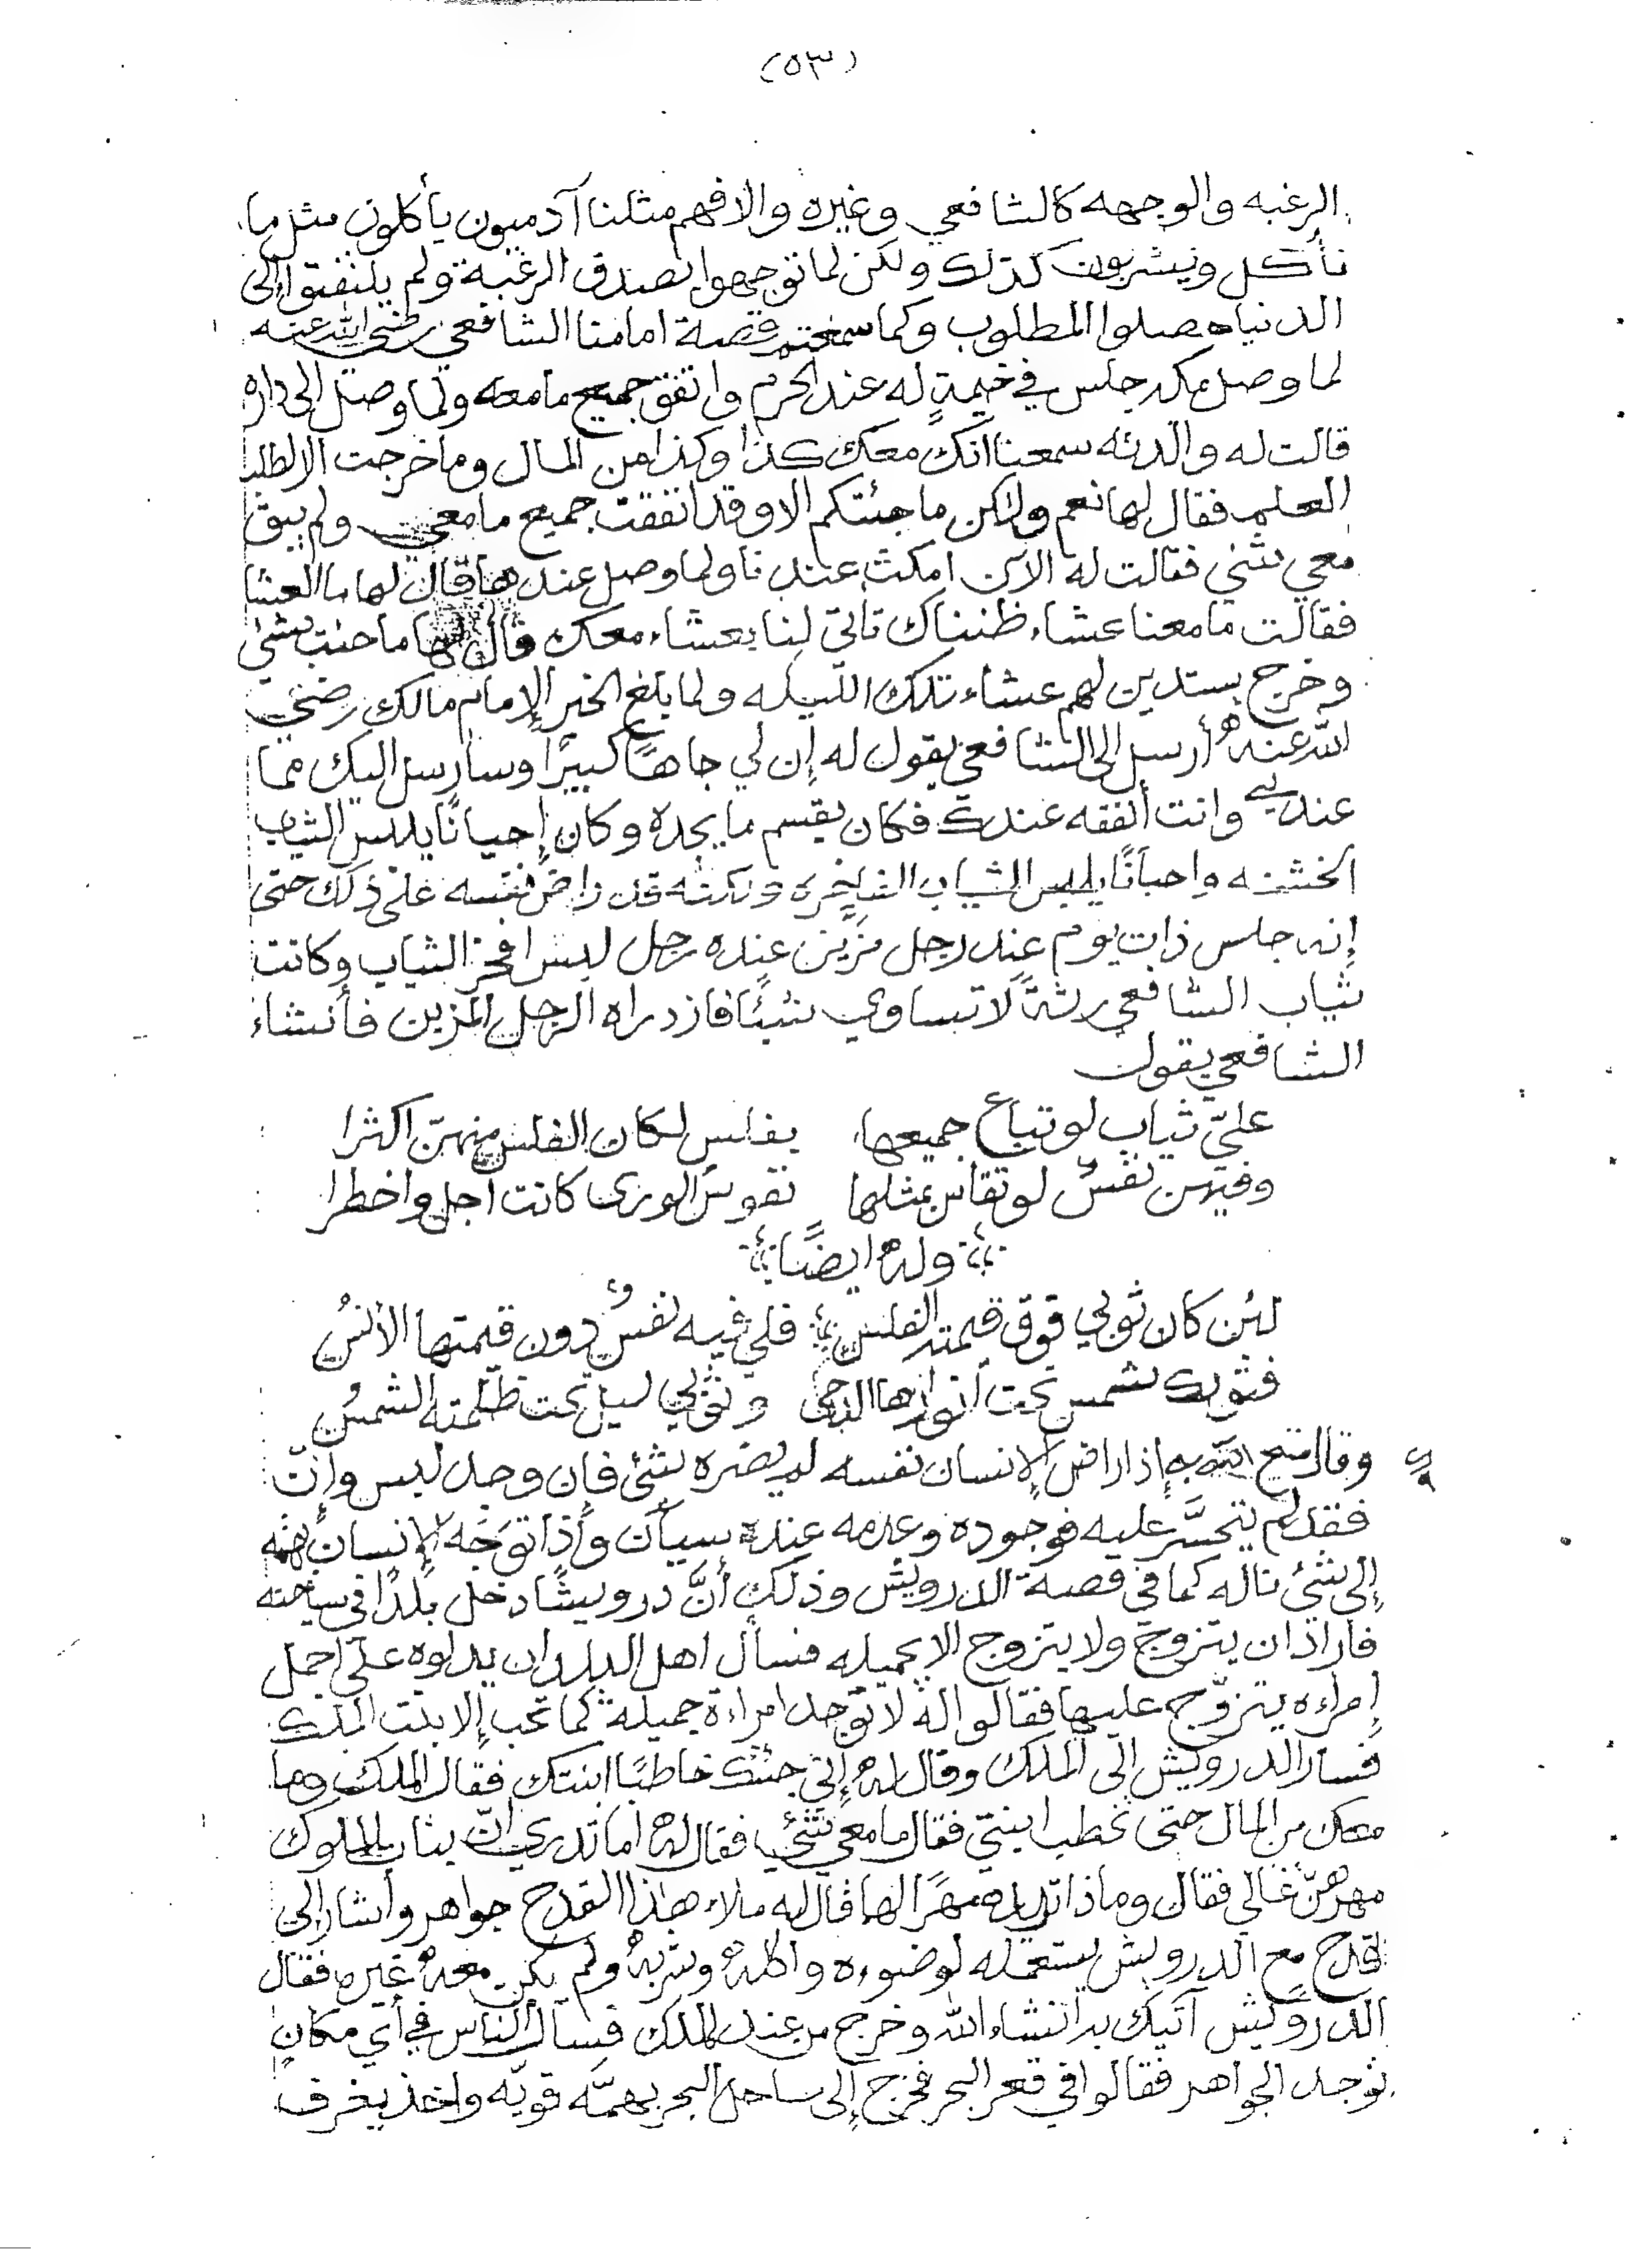 (٥٣)
الرغبه والوجهه كالشافعي وغيره والا فهم مثلنا آدميون يأكلون مثل ما
نأكل ويشربون كذلك ولكن لما توجهوا بصدق الرغبة ولم يلتفتوا إلى
الدنيا حصلوا المطلوب وكما سمعتم قصة امامنا الشافعي رضي الله عنه
لما وصل مكه جلس في خيمةٍ له عند الحرم وانفق جميع مامعه ولما وصل الى داره
قالت له والدته سمعنا انك معك كذا وكذا من المال وما خرجت الا لطلب
العلم فقال لها نعم ولكن ما جئتكم الا وقد انفقت جميع ما معي ولم يبق
معي شئي فقالت له الآن امكث عندنا ولما وصل عندها قال لها ما العشا
فقالت ما معنا عشاء ظنناك تأتي لنا بعشاء معك قال لها ما جئت بشئي
وخرج يستدين لهم عشاء تلك الليله ولما بلغ الخبر الإمام مالك رضي
الله عنهُ أرسل الى الشافعي يقول له إن لي جاهاً كبيرًا وسأرسل اليك مما
عندي وانت أنفقه عندك فكان يقسم ما يجده وكان إحيانًا يلبس الثياب
الخشنه واحيانًا يلبس الثياب الفاخره ولكنه قد راض نفسه على ذلك حتى
إنه جلس ذات يوم عند رجل مزين عنده رجل لبس افخر الثياب وكانت
ثياب الشافعي رثةً لا تساوي شيئًا فازدراه الرجل المزين فأنشاء
الشافعي يقول
عليّ ثياب لو تباع جميعها بفلس لكان الفلس منهنّ اكثرا
وفيهن نفسٌ لو تقاس بمثلها نفوس الورى كانت اجل واخطرا
ولهُ ايضًا
لئن كان ثوبي فوق قيمته الفلس فلي فيه نفسٌ دون قيمتها الأنسُ
فثوبك شمس تحت أنوارها الدجى وثوبي ليل تحت ظلمته الشمسُ
وقال فتح الله به إذا راض الإنسان نفسه لم يضره شئي فإن وجد لبس وإن
فقد لم يتحسَّر عليه فوجوده وعدمه عنده سيآن وإذا توجّه الإنسان بهمته
إلى شئي ناله كما في قصة الدرويش وذلك أنَّ درويشًا دخل بلدًا في سياحته
فأراد ان يتزوج ولا يتزوج الا بجميله فسأل اهل البلد ان يدلوه على اجمل
إمراءه يتزوّج عليها فقالوا لهُ لا توجد امراءة جميلة كما تحب إلا بنت الملك
فسار الدرويش الى الملك وقال لهُ إنّي جئتك خاطبًا ابنتك فقال الملك وما
معك من المال حتى تخطب ابنتي فقال ما معي شئي فقال لهُ اما تدري انّ بنات الملوك
مهرهنّ غالي فقال وماذا تريده مهرًا لها قال له ملاء هذا القدح جواهر وأشار إلى
قدح مع الدرويش يستعمله لوضوءه واكلهُ وشربهُ ولم يكن معهُ غيره فقال
الدرويش آتيك به انشاء الله وخرج من عند الملك فسأل الناس في أي مكانٍ
توجد الجواهر فقالوا في قعر البحر فخرج إلى ساحل البحر بهمّه قويّه واخذ يغرف